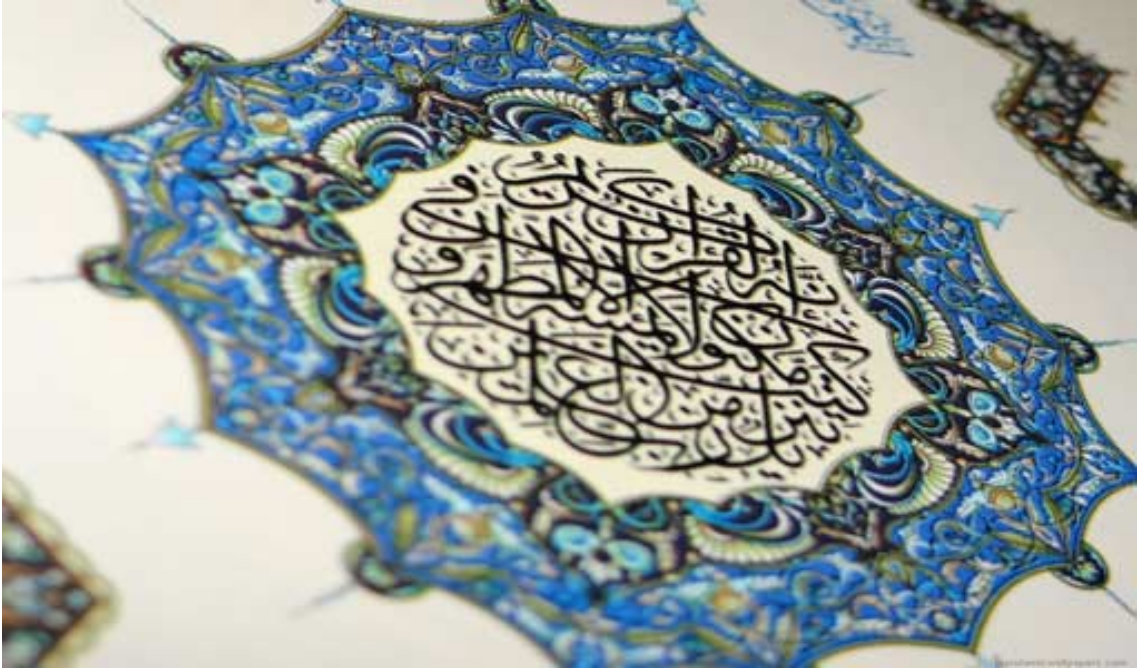 إِنَّهُ لَقُرْآنٌ كَرِيمٌ فِي
كِتَٰبٍ مَكْنُونٍ لَا يَمَسُّهُ إِلَّا الْمُطَهَّرُونَ
تَنْزِيلٌ مِنْ رَبِّ الْعَٰلَمِينَ